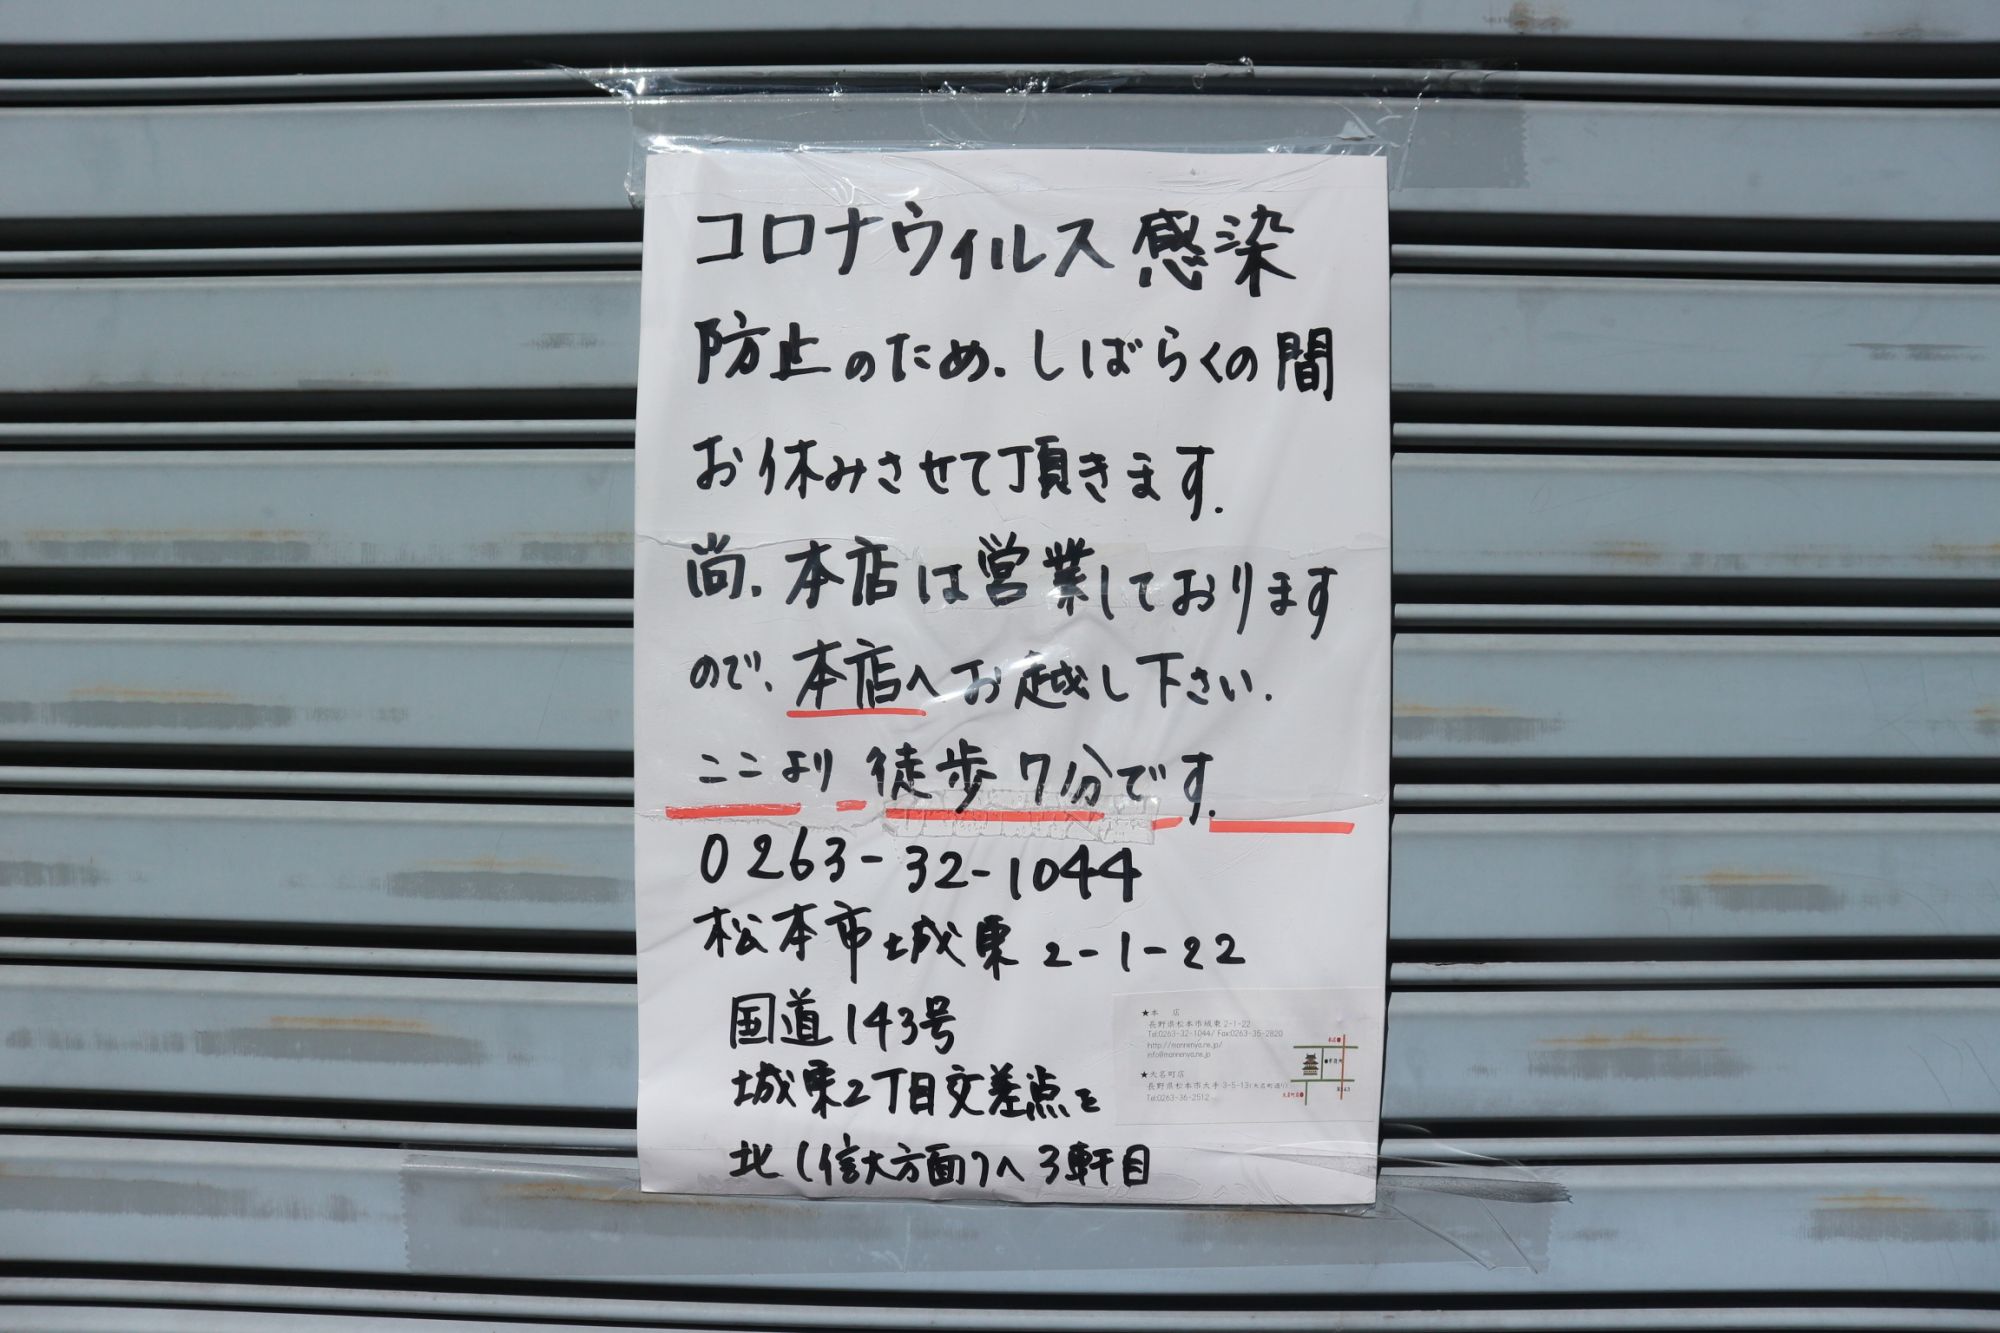 コロナウィルス感染
防止のため、しばらくの間
お休みさせて頂きます。
尚、本店は営業しております
ので、本店へお越し下さい。
ここより徒歩7分です。
0263-32-1044
松本市城東2-1-22
国道143号
城東2丁目交差点を
北(信大方面)へ3軒目
★本 店
長野県松本市城東2-1-22
Tel:0263-32-1044/ Fax:0263-35-2820
http://mannenya.ne.jp/
info@mannenya.ne.jp
★大名町店
長野県松本市大手3-5-13(大名町通り)
Tel:0263-36-2512